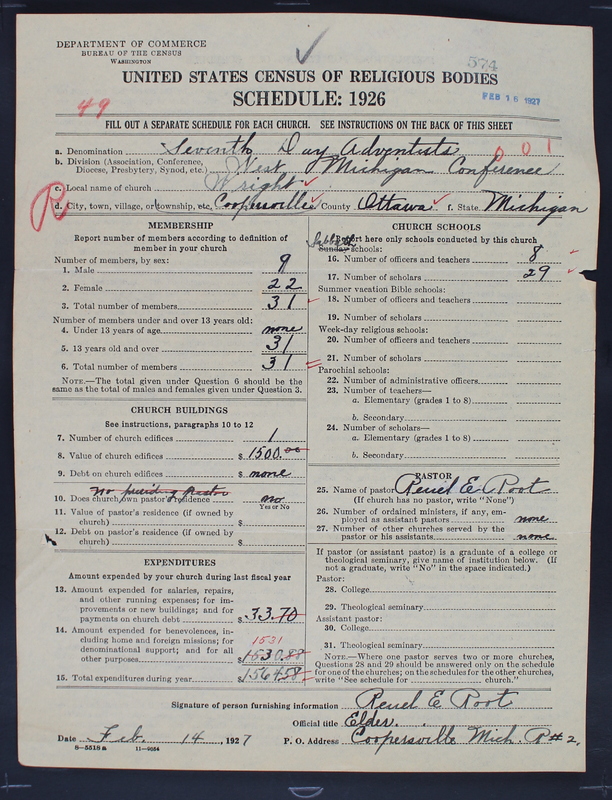 574
DEPARTMENT OF COMMERCE
BUREAU OF THE CENSUS
WASHINGTON
FEB 16 1927
UNITED STATES CENSUS OF RELIGIOUS BODIES
SCHEDULE: 1926
49
FILL OUT A SEPARATE SCHEDULE FOR EACH CHURCH. SEE INSTRUCTIONS ON THE BACK OF THIS SHEET
a. Denomination Seventh Day Adventists 001
b. Division (Association, Conference, Diocese, Presbytery, Synod, etc.) West Michigan Conference
c. Local name of church Wright
R
d. City, town, village, or township, etc. Coopersville e. County Ottawa f. State Michigan
MEMBERSHIP
Report number of members according to definition of
member in your church
Number of members, by sex:
1. Male 9
2. Female 22
3. Total number of members 31
Number of members under and over 13 years old:
4. Under 13 years of age none
5. 13 years old and over 31
6. Total number of members 31
NOTE.—The total given under Question 6 should be the
same as the total of males and females given under Question 3.
CHURCH BUILDINGS
See instructions, paragraphs 10 to 12
7. Number of church edifices 1
8. Value of church edifices $1500.00
9. Debt on church edifices $ none
No presiding Pastor
10. Does church own pastor's residence no
Yes or No
11. Value of pastor's residence (if owned by
church) $
12. Debt on pastor's residence (if owned by
church) $
EXPENDITURES
Amount expended by your church during last fiscal year
13. Amount expended for salaries, repairs,
and other running expenses; for im-
provements or new buildings; and for
payments on church debt $33.70
14. Amount expended for benevolences, in-
cluding home and foreign missions; for
denominational support; and for all 1531
other purposes $1530.88
15. Total expenditures during year $1564.58
CHURCH SCHOOLS
Report here only schools conducted by this church
Sabbath
Sunday schools:
16. Number of officers and teachers 8
17. Number of scholars 29
Summer vacation Bible schools:
18. Number of officers and teachers
19. Number of scholars
Week-day religious schools:
20. Number of officers and teachers
21. Number of scholars
Parochial schools:
22. Number of administrative officers
23. Number of teachers—
a. Elementary (grades 1 to 8)
b. Secondary
24. Number of scholars—
a. Elementary (grades 1 to 8)
b. Secondary
PASTOR
25. Name of pastor Reuel E. Root
(If church has no pastor, write "None")
26. Number of ordained ministers, if any, em-
ployed as assistant pastors none
27. Number of other churches served by the
pastor or his assistants none
If pastor (or assistant pastor) is a graduate of a college or
theological seminary, give name of institution below. (If
not a graduate, write "No" in the space indicated.)
Pastor:
28. College
29. Theological seminary
Assistant pastor:
30. College
31. Theological seminary
NOTE.—Where one pastor serves two or more churches,
Questions 28 and 29 should be answered only on the schedule
for one of the churches; on the schedules for the other churches,
write "See schedule for church."
Signature of person furnishing information Reuel E Root
Official title Elder.
Date Feb. 14, 1927 P. O. Address Coopersville Mich. R#2.
8-5518a 11-9054